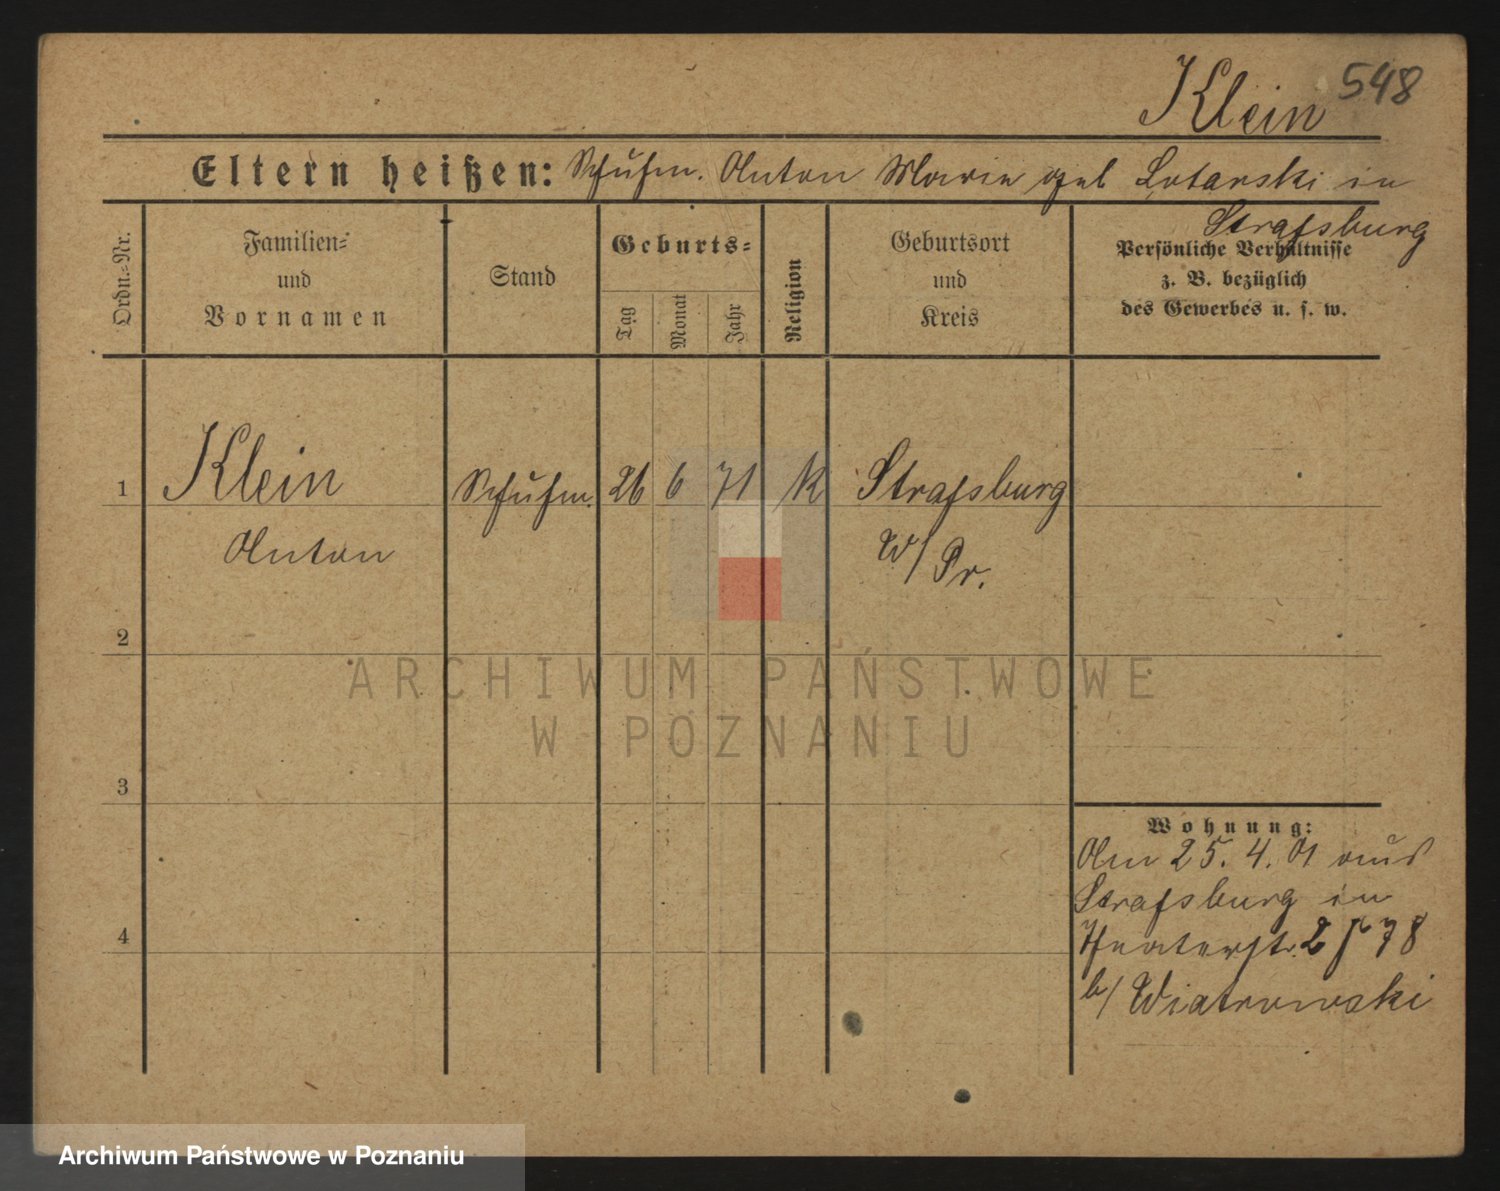 Klein 548
Eltern heißen: Schuhm. Anton Marie geb Lotarski in
Strassburg
Ordn.-Nr.
Familien-
und
Vornamen
Stand
Geburts-
Tag
Monat
Jahr
Religion
Geburtsort
und
Kreis
Persönliche Verhältnisse
z. B. bezüglich
des Gewerbes u. s. w.
1 Klein Schuhm. 26 6 71 K Strassburg
Anton W/Pr.
2
ARCHIWUM PAŃSTWOWE
W POZNANIU
3
Wohnung:
Am 25. 4. 01 aus
Strassburg in
4
Theaterstr. 2 78
b/ Wiatrowski
Archiwum Państwowe w Poznaniu